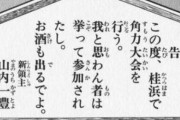 告
この度、桂浜で
角力大会を
行う。
我と思わん者は
挙って参加され
たし。
お酒も出るでよ。
新領主
山内一豊